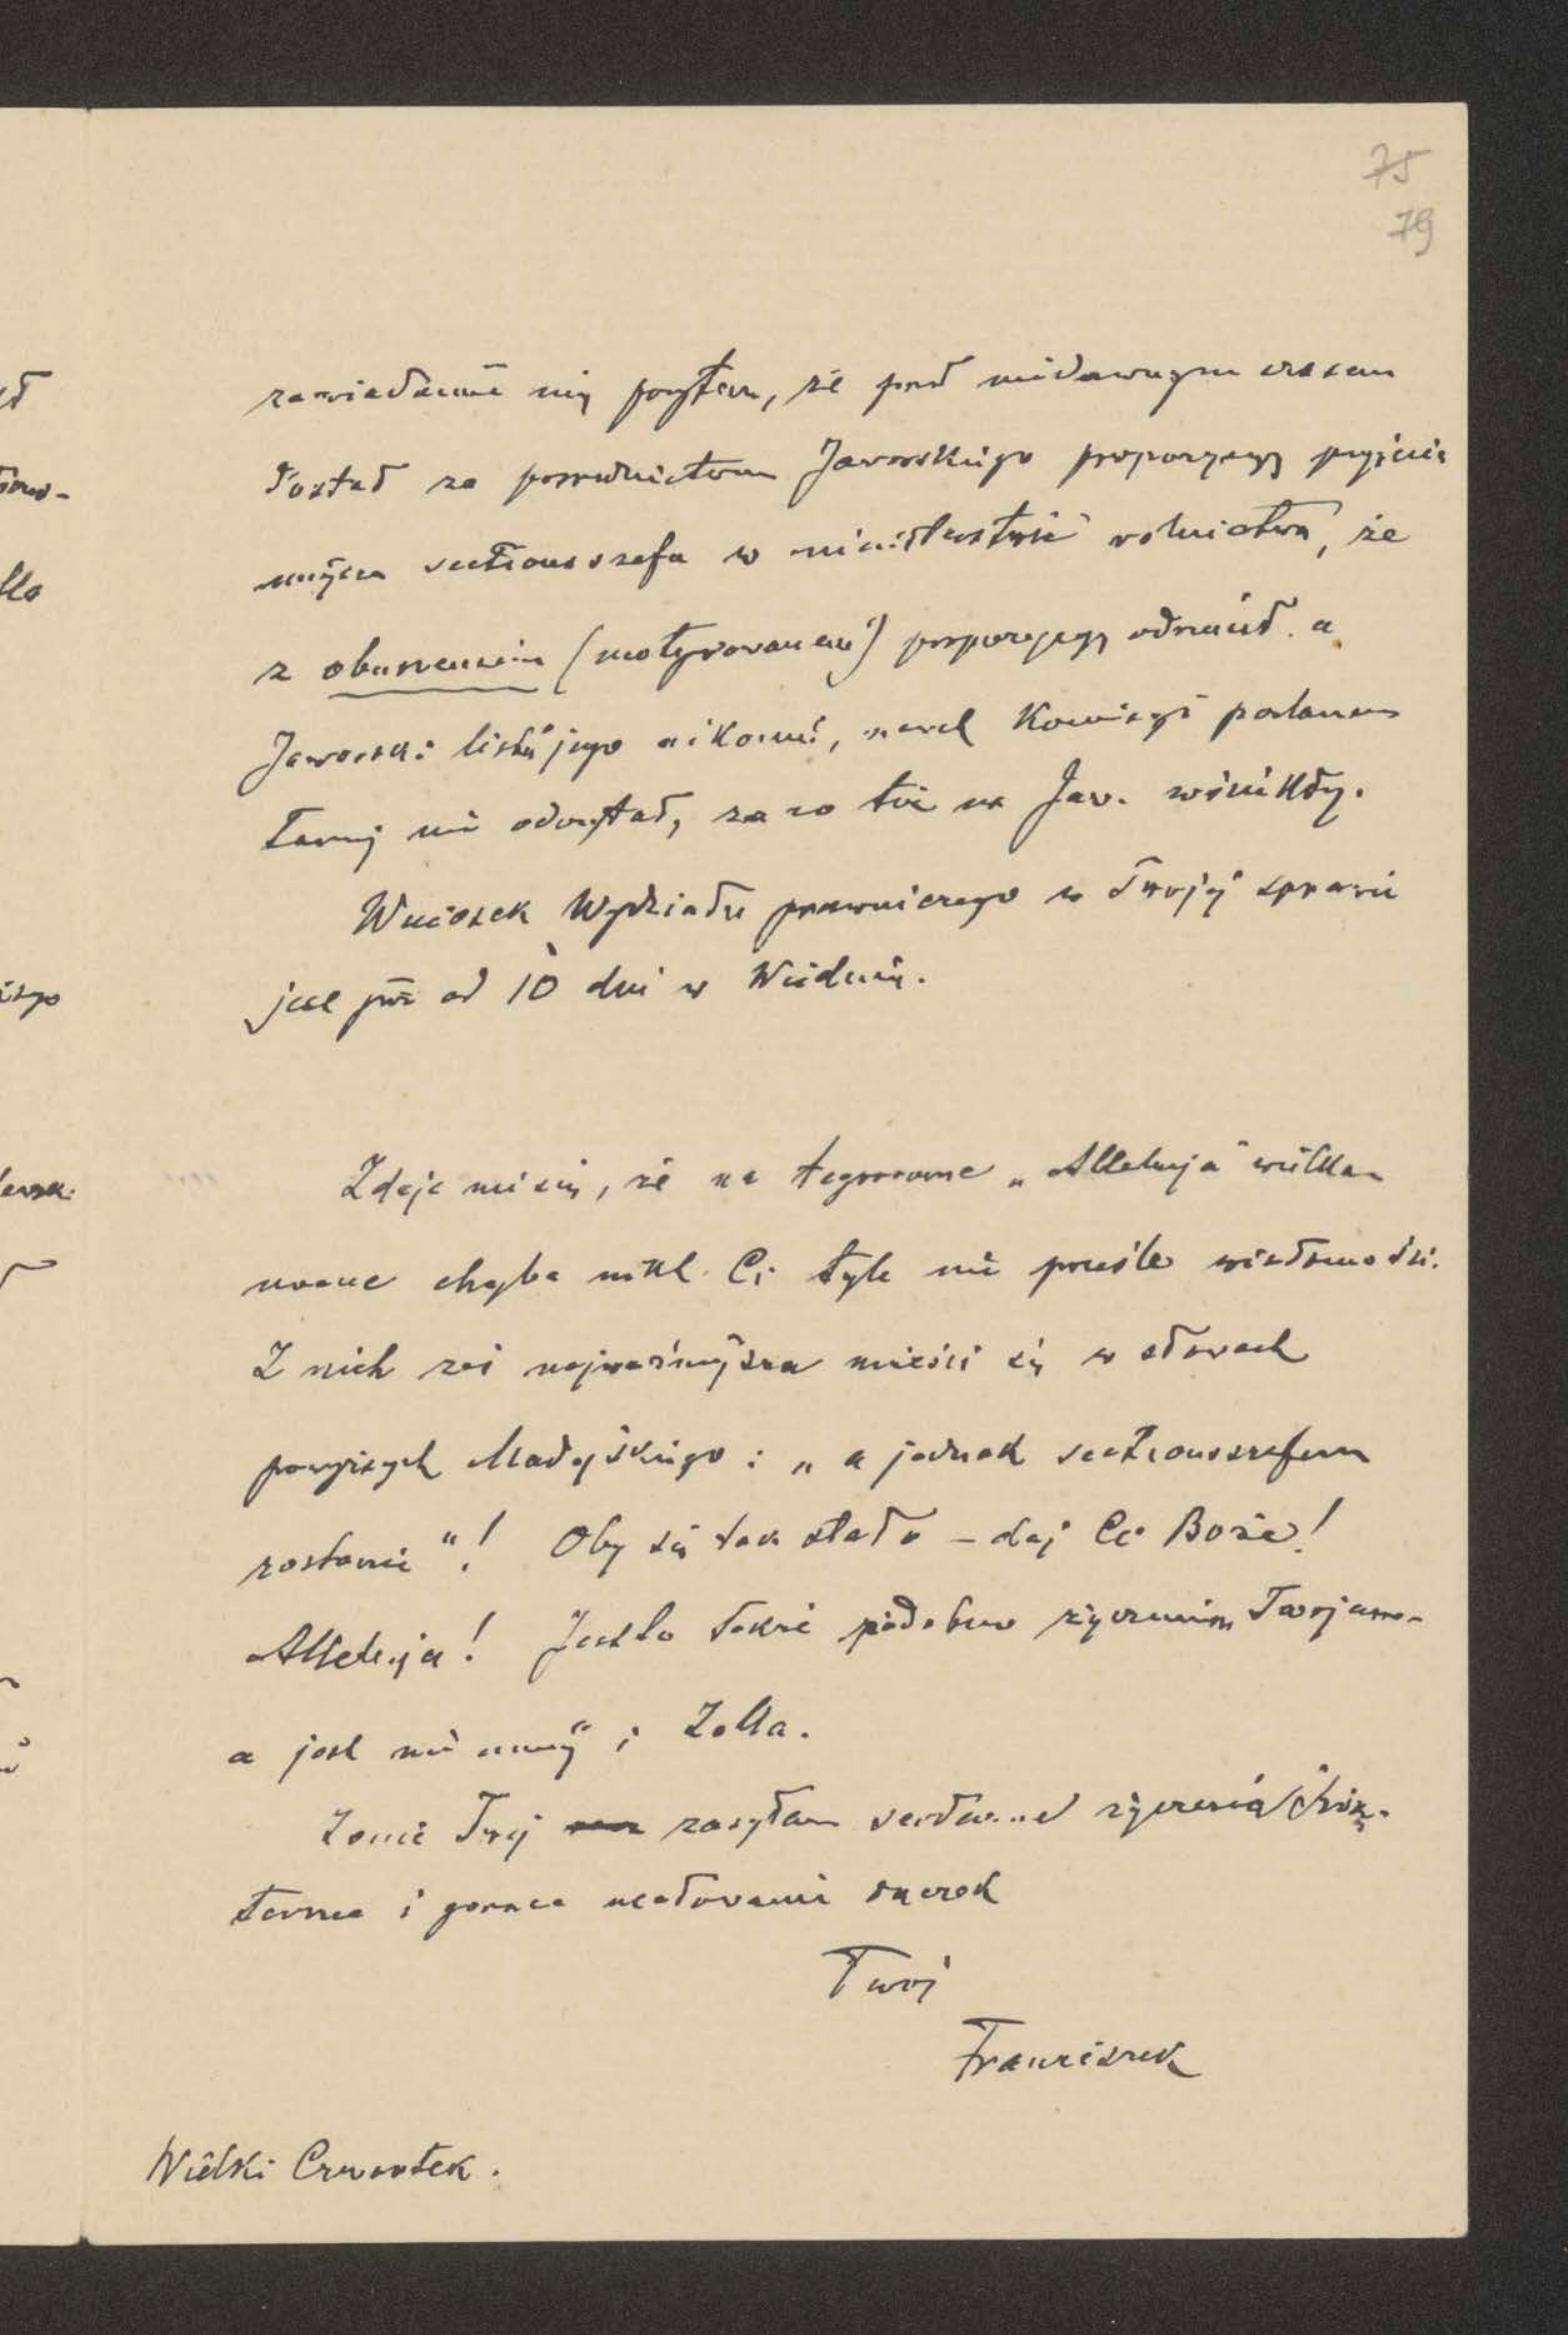 75
79
zawiadamia mię przytem, że przed niedawnym czasem
dostał za pośrednictwem Jaworskiego propozycyę przyjęcia
miejsca sectionsszefa w ministerstwie rolnictwa, że
z oburzeniem (motywowanem) propozycyę odrzucił a
Jaworski listu jego nikomu, nawet Komisyi parlamen
tarnej nie odczytał, za co też na Jaw. wściekły.
Wniosek Wydziału prawniczego w Twojej sprawie
jest już od 10 dni w Wiedniu.
Zdaje mi się, że na tegoroczne „Alleluja" wielka-
nocne chyba nikt Ci tyle nie prześle wiadomości.
Z nich zaś najważniejsza mieści się w słowach
powyższych Madejskiego: „a jednak sectionsszefem
zostanie"! Oby się tak stało – daj Ci Boże!
Alleluja! Jest to także podobno życzeniem
a jest nie mniej i Zolla.
Żonie Twej zasyłam serdeczne życzenia świą-
teczne i gorące ucałowanie rączek
Twój
Franciszek
Wielki Czwartek.
ło